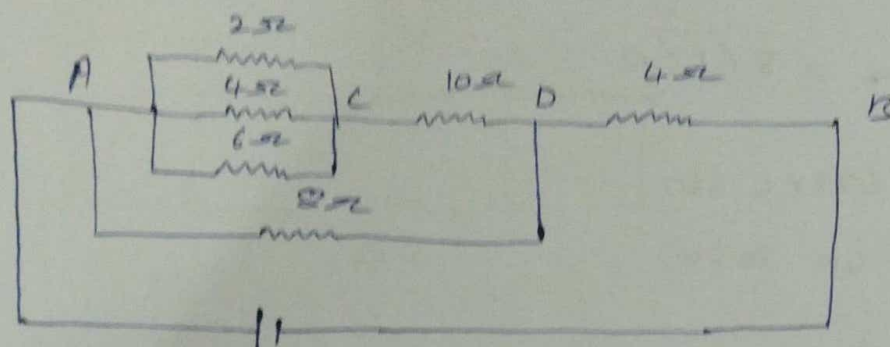 2 Ω
A
4 Ω
C
10 Ω
D
4 Ω
B
6 Ω
8 Ω